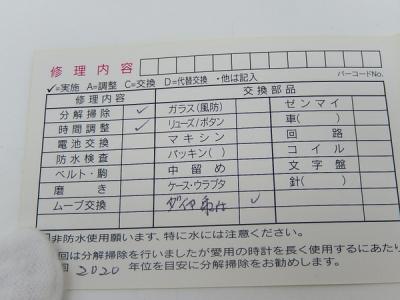 修理内容
バーコードNo.
✓=実施 A=調整 C=交換 D=代替交換 ・他は記入
修理内容 交換部品
分解掃除 ✓ ガラス(風防) ゼンマイ
時間調整 ✓ リューズ/ボタン 車( )
電池交換 マキシン 回路
防水検査 パッキン( ) コイル
ベルト・駒 中留め 文字盤
磨き ケース・ウラブタ 針( )
ムーブ交換 ✓
非防水使用願います、特に水には注意ください。
回は分解掃除を行いましたが愛用の時計を長く使用するにあたり
回 2020 年位を目安に分解掃除をお勧めします。